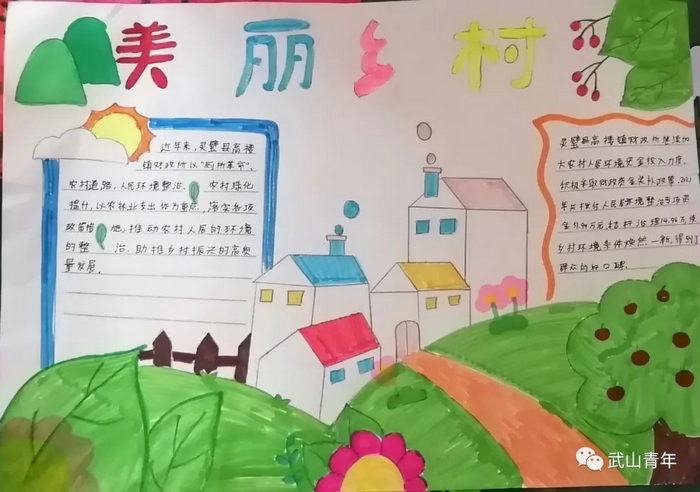 美丽乡村
近年来,灵璧县高楼
镇财政所以"厕所革命"、
农村道路、人居环境整治、农村绿化
提升,以农林业支出作为重点,落实各项
政策措施,推动农村人居的环境
的整治,助推乡村振兴的高质
量发展。
灵璧县高楼镇财政所继续加
大农村人居环境资金投入力度,
积极采取财政资金奖补政策,2021
年共拨付人居环境整治专项资
金
万元,秸秆治理14.96万元
乡村环境条件焕然一新,得到了
群众的好口碑。
武山青年